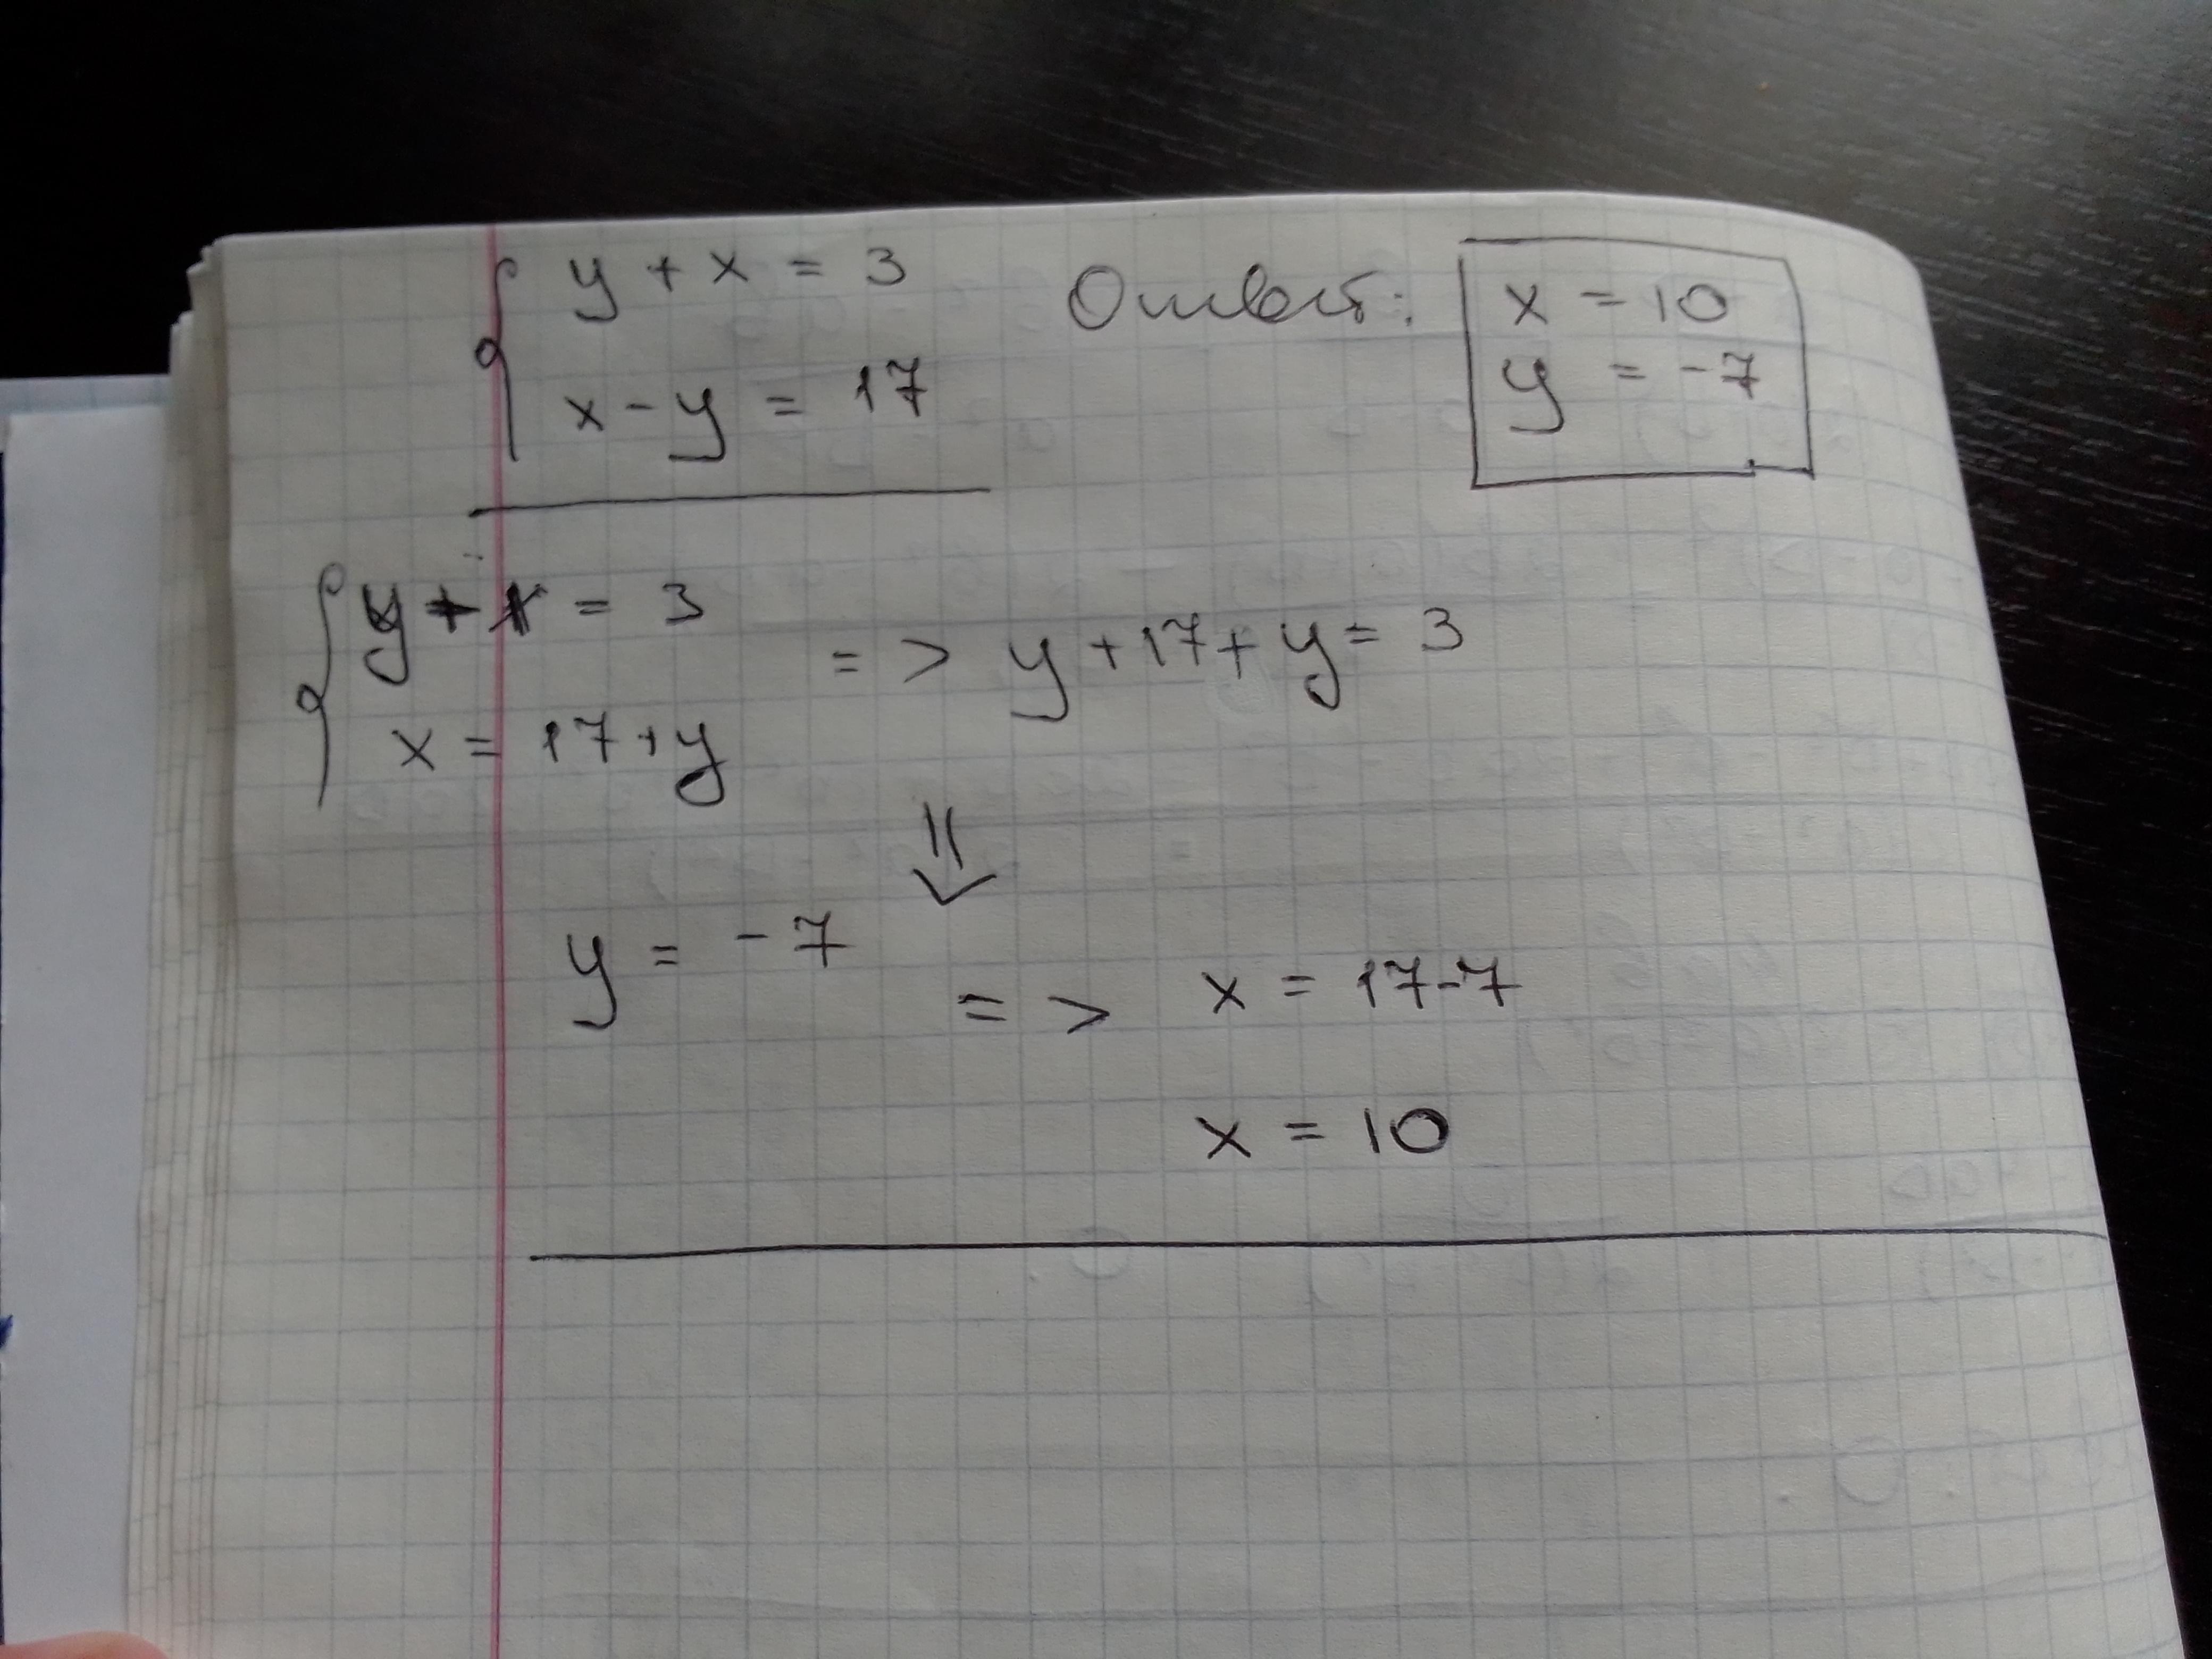 y + x = 3
x - y = 17
Ответ:
x = 10
y = -7
y + x = 3
x = 17 + y
=> y + 17 + y = 3
⇓
y = -7
=> x = 17 - 7
x = 10